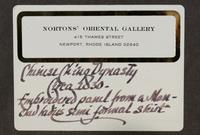 NORTONS' ORIENTAL GALLERY
415 THAMES STREET
NEWPORT, RHODE ISLAND 02840
Chinese Ch'ing Dynasty
Circa 1830.
Embroidered panel from a Man-
semi formal skirt